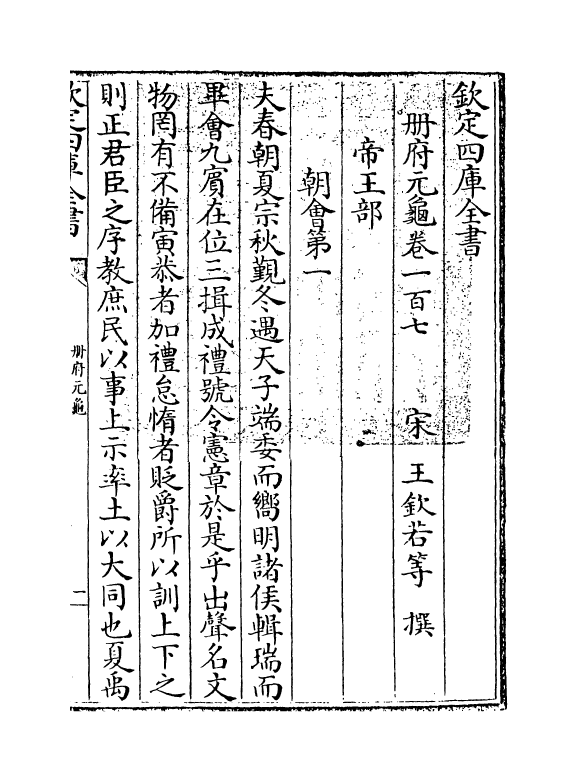 欽定四庫全書
册府元龜卷一百七
宋 王欽若等 撰
帝王部
朝會第一
夫春朝夏宗秋覲冬遇天子端委而嚮明諸侯輯瑞而
畢會九賓在位三揖成禮號令憲章於是乎出聲名文
物罔有不備寅恭者加禮怠惰者貶爵所以訓上下之
則正君臣之序教庶民以事上示率土以大同也夏禹
欽定四庫全書
册府元龜
二